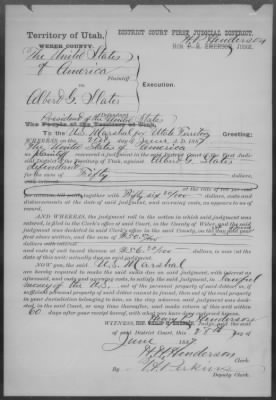 Territory of Utah,
WEBER COUNTY.
DISTRICT COURT FIRST JUDICIAL DISTRICT.
H P Henderson
HON P. H. EMERSON, JUDGE.
The United States
of America
Plaintiff
vs.
EXECUTION.
Albert G. Slater
Defendant
President of the United States
The People of the Territory of Utah
To the U.S. Marshal for Utah Territory Greeting:
WHEREAS on the 21st day of June A.D. 1887
The United States of America
as plaintiff recovered a judgment in the said District Court of the First Judicial
District of the Territory of Utah, against Albert G. Slater
defendant
for the sum of Fifty dollars
at the rate of per cent.
together with Fifty six 20/100 dollars, costs and
disbursements at the date of said judgment, and accruing costs, as appears to us of
record.
AND WHEREAS, the judgment roll in the action in which said judgment was
entered, is filed in the Clerk's office of said Court, in the County of Weber and the said
judgment was docketed in said Clerk's office in the said County, on the day and year
first above written, and the sum of $50.00
dollars
and costs of said Court thereon $56.20/100 dollars, is now (at
the date of this writ) actually due on said judgment.
NOW you, the said U.S. Marshal
are hereby required to make the said sums due on said judgment, with interest as
aforesaid, and costs and accruing costs, to satisfy the said judgment, in lawful
money of the U.S., out of the personal property of said debtor or, if
sufficient personal property of said debtor cannot be found, then out of the real property
in your Jurisdiction belonging to him, on the day whereon said judgment was docketed
in the said County, or at any time thereafter, and make return of this writ within
60 days after your receipt hereof, with what you have done endorsed hereon.
WITNESS, HON. Henry P Henderson
Judge of the said
District Court, this 28th day of
June 1887
H. H. Henderson
Clerk.
By
Deputy Clerk.